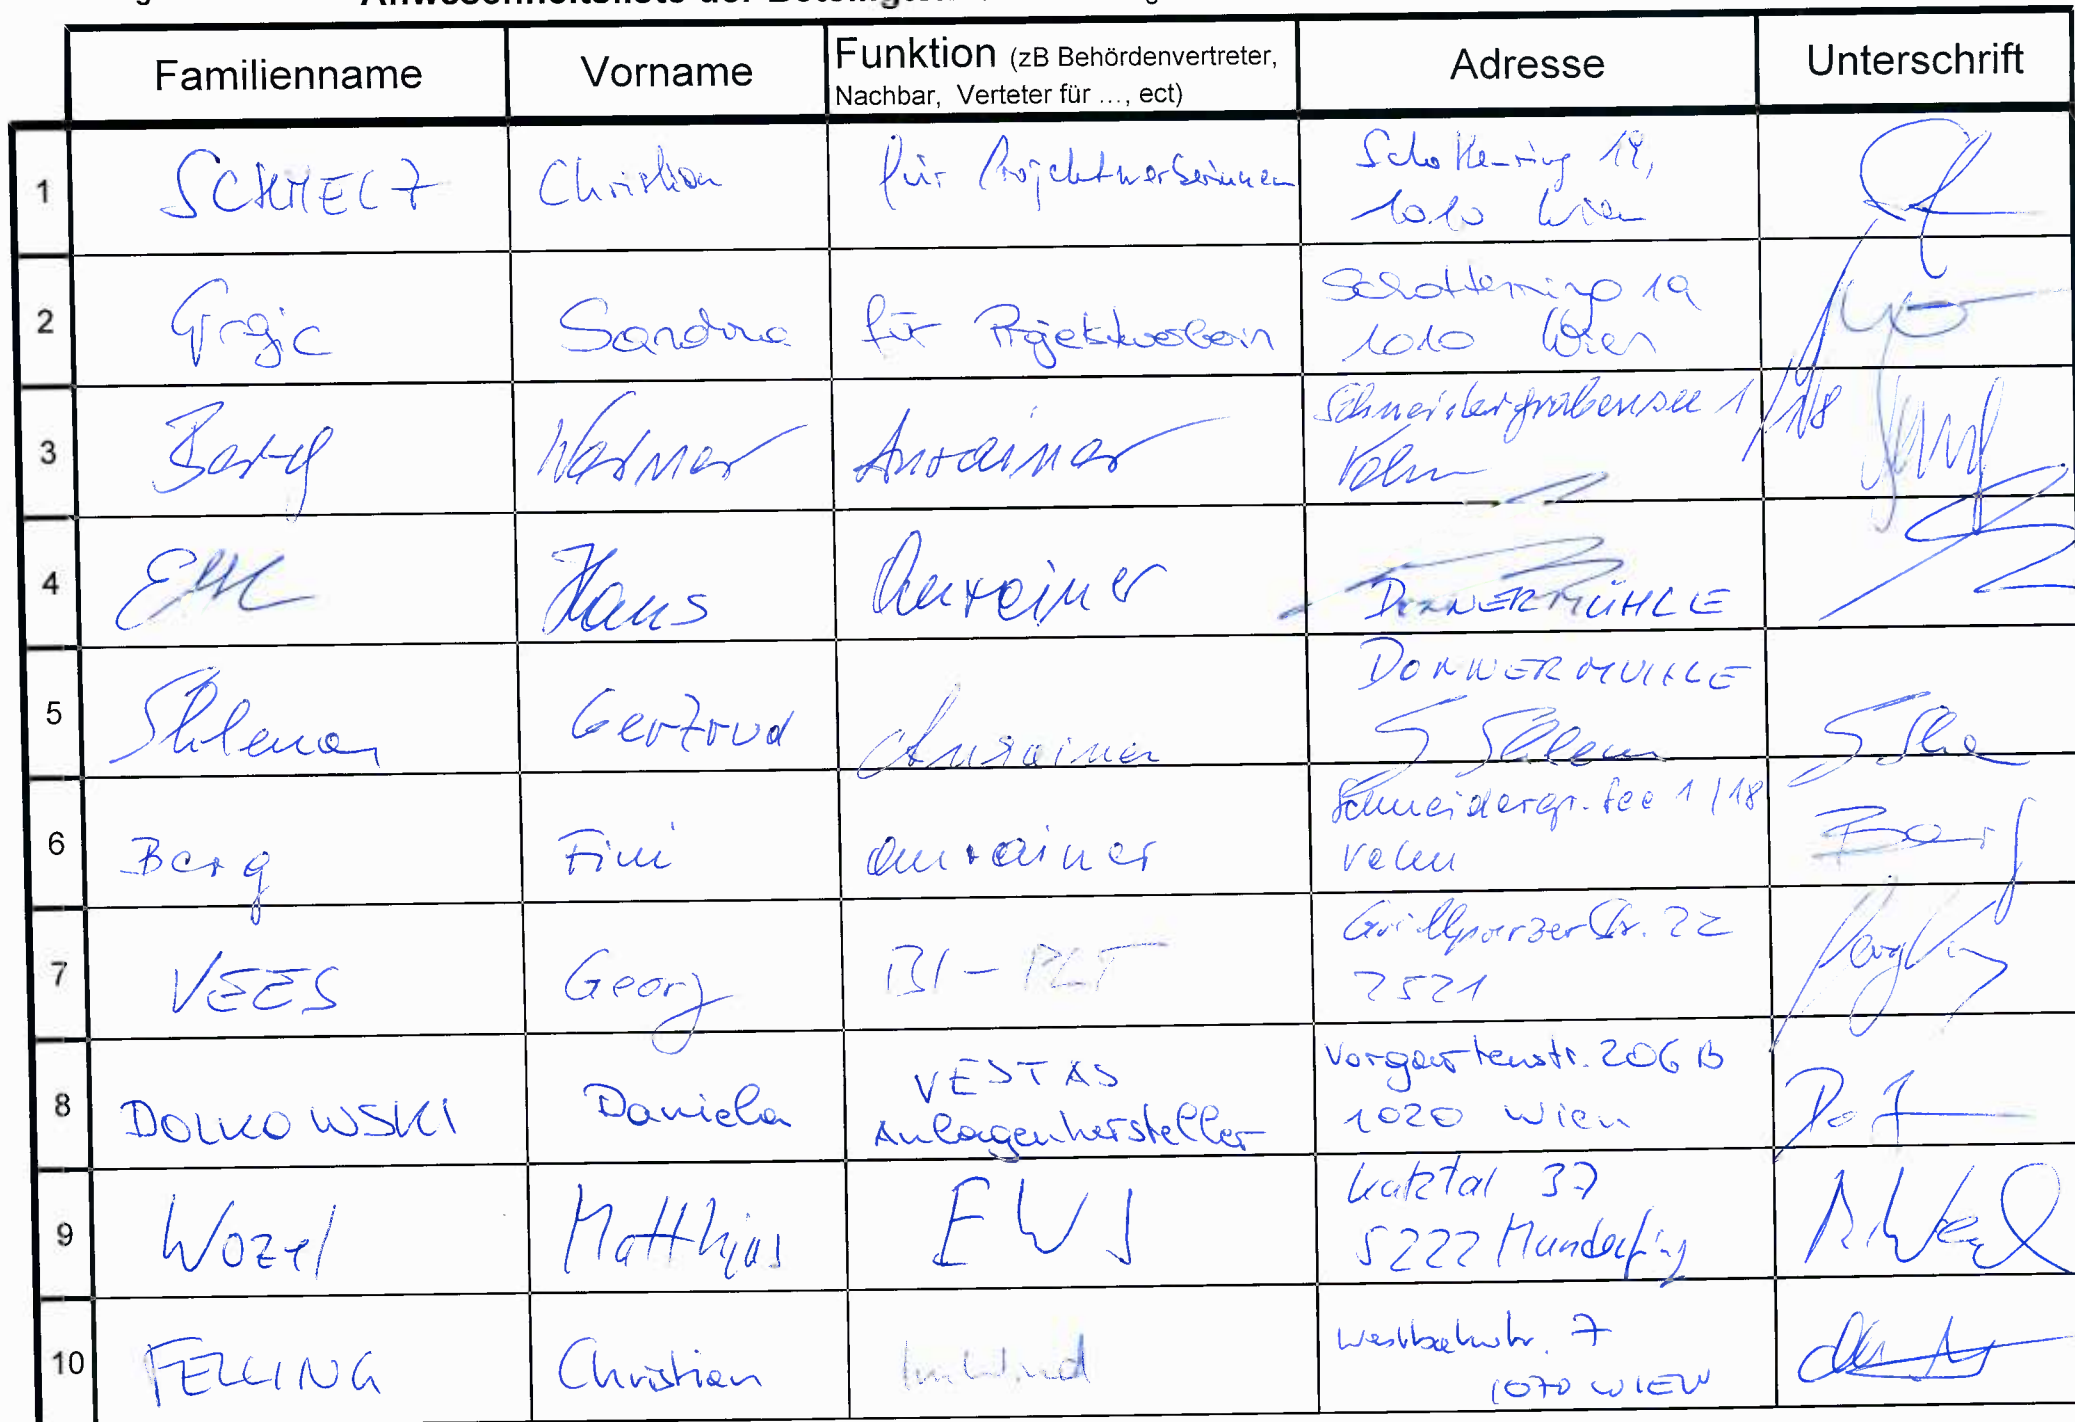 Familienname Vorname Funktion (zB Behördenvertreter, Nachbar, Verteter für ..., ect) Adresse Unterschrift
1 SCHMELZ Christian für Projektwerberinnen Schottenring 19,
1010 Wien
2 Grgic Sandra für Projektwerberin Schottenring 19
1010 Wien
3 Berg Werner Anrainer Schneidergrabensee 1/18
Velm
4 Hans Anrainer DONNERMÜHLE
5 Gertrud Anrainer DONNERMUHLE
6 Berg Fini anrainer Schneidergr. See 1/18
Velm
7 VEES Georg BI - Grillparzer Str. 22
2521
8 DOLKOWSKI Daniela VESTAS
Anlagenhersteller Vorgartenstr. 206 B
1020 Wien
9 Wozel Matthias EWS Katztal 37
5222 Munderfing
10 FELLING Christian ImWind Westbahnstr. 7
1070 WIEN